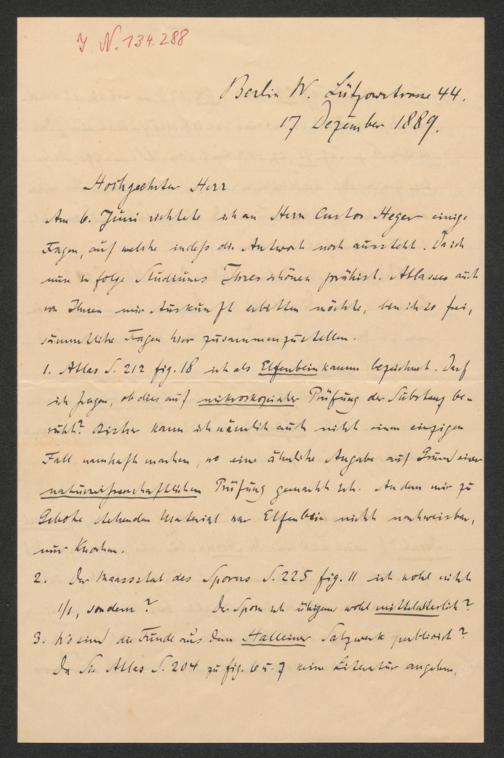 J. N. 134.288
Berlin W. Lützowstrasse 44.
17 Dezember 1889.
Hochgeehrter Herr
Am 6. Juni richtete ich an Herrn Custos Heger einige
Fragen, auf welche indess die Antwort noch aussteht. Da ich
nun zu folge Studiums Ihres schönen prähist. Atlasses auch
von Ihnen mir Auskunft erbitten möchte, bin ich so frei,
sämmtliche Fragen hier zusammenzustellen.
1. Atlas S. 212 fig. 18 ist als Elfenbeinkamm bezeichnet. Darf
ich fragen, ob dies auf mikroskopischer Prüfung der Substanz be-
ruht? Bisher kann ich nämlich auch nicht einen einzigen
Fall namhaft machen, wo eine ähnliche Angabe auf Grund einer
naturwissenschaftlichen Prüfung gemacht ist. An dem mir zu
Gebote stehenden Material war Elfenbein nicht nachweisbar,
nur Knochen.
2. Der Maassstab des Sporns S. 225 fig. 11 ist wohl nicht
1/1, sondern? Der Sporn ist übrigens wohl mittelalterlich?
3. Wo sind die Funde aus dem Halleiner Salzwerk publicirt?
Da Sie Atlas S. 204 zu fig. 6 u. 7 keine Literatur angeben,